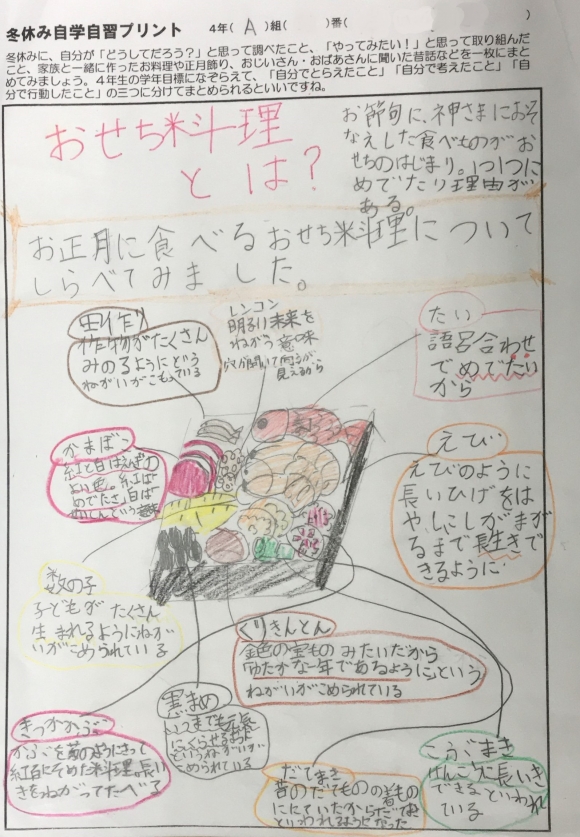 冬休み自学自習プリント 4年( A )組( )番( )
冬休みに、自分が「どうしてだろう？」と思って調べたこと、「やってみたい！」と思って取り組んだ
こと、家族と一緒に作ったお料理や正月飾り、おじいさん・おばあさんに聞いた昔話などを一枚にまと
めてみましょう。4年生の学年目標になぞらえて、「自分でとらえたこと」「自分で考えたこと」「自
分で行動したこと」の三つに分けてまとめられるといいですね。
おせち料理
とは？
お節句に、神さまにおそ
なえした食べものがお
せちのはじまり。1つ1つに
めでたり理由が
ある。
お正月に食べるおせち料理について
しらべてみました。
田作り
作物がたくさん
みのるようにという
ねがいがこもっている
レンコン
明るい未来を
ねがう意味
穴が開いて向うが
見えるから
たい
語呂合わせ
でめでたい
から
かまぼこ
紅と白はえんぎの
よい色。紅は
めでたさ、白は
という
えび
えびのように
長いひげをは
やし、こしがまが
るまで長生きで
きるように
数の子
子どもがたくさん
生まれるようにねが
いがこめられている
くりきんとん
金色の宝ものみたいだから
ゆたかな一年であるようにという
ねがいがこめられている
黒まめ
いつまでも元気
にくらせるように
というねがいが
こめられている
きっかかぶ
かぶを菊のようにきって
紅白にそめた料理。長い
きをねがってたべる
だてまき
昔のだてものの着もの
ににていたからだてまき
といわれるようになった
こぶまき
げんこうに長いき
できるといわれ
ている